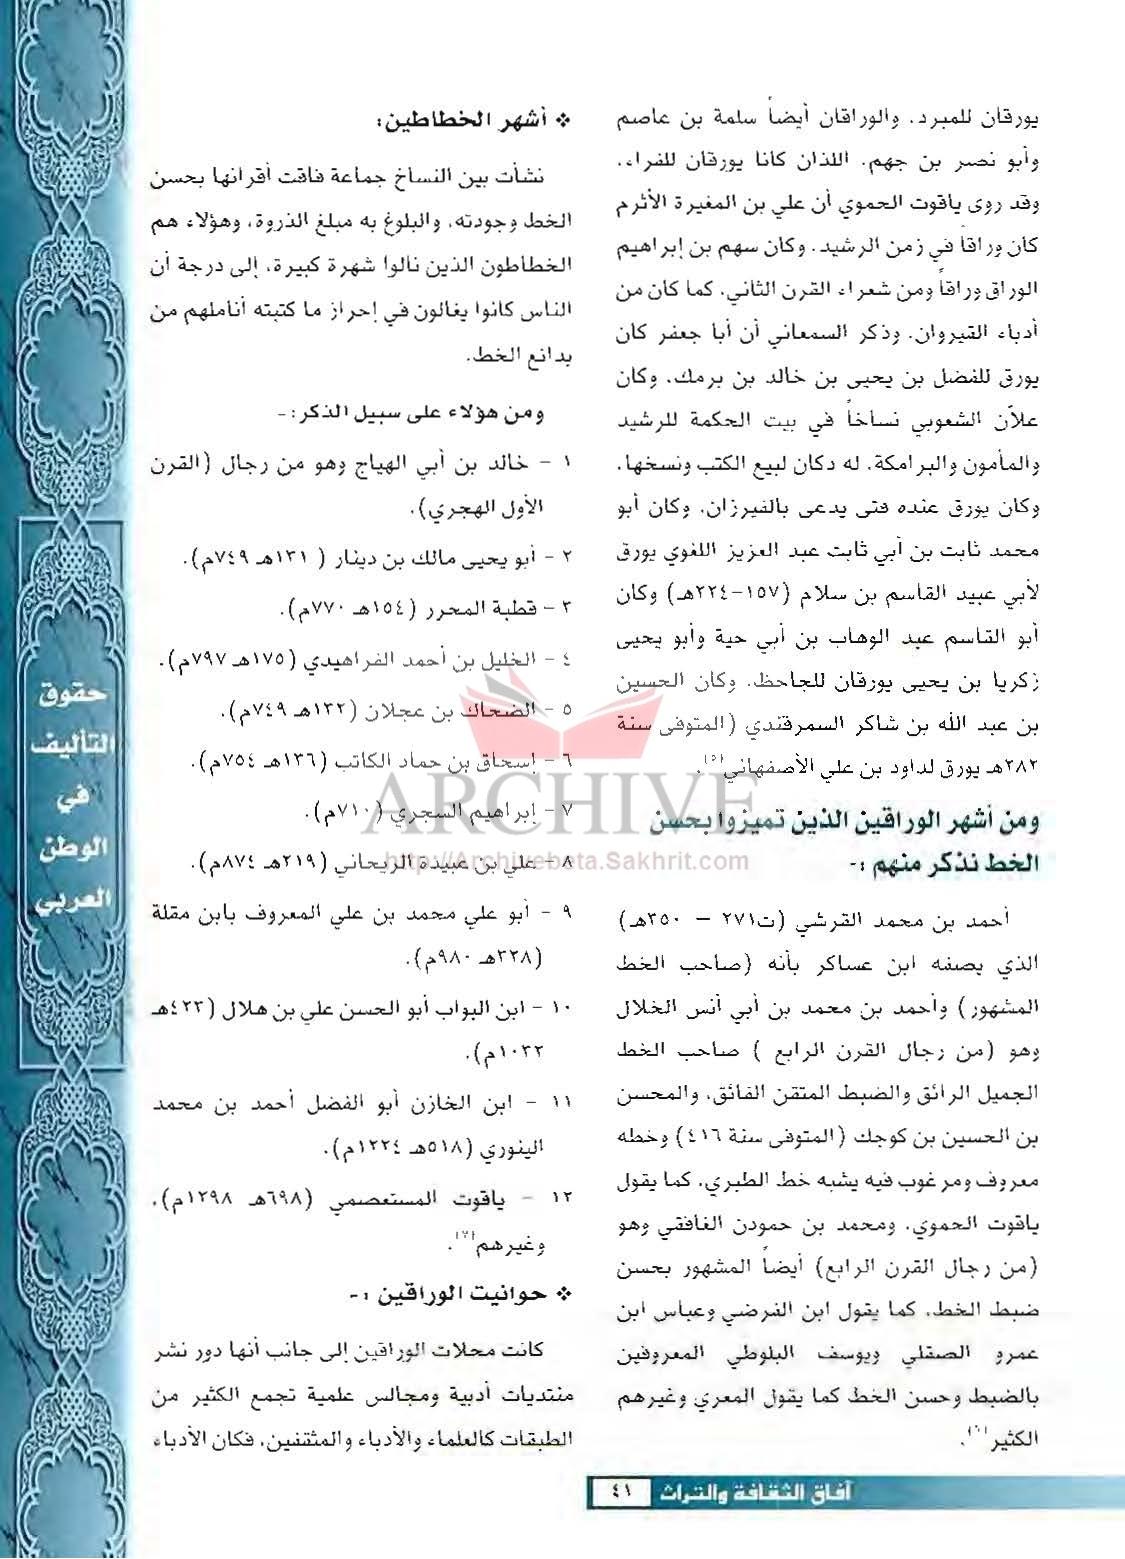 يورقان للمبرد، والوراقان أيضاً سلمة بن عاصم
وأبو نصر بن جهم، اللذان كانا يورقان للفراء،
وقد روى ياقوت الحموي أن علي بن المغيرة الأثرم
كان وراقاً في زمن الرشيد، وكان سهم بن إبراهيم
الوراق وراقاً ومن شعراء القرن الثاني، كما كان من
أدباء القيروان، وذكر السمعاني أن أبا جعفر كان
يورق للفضل بن يحيى بن خالد بن برمك، وكان
علاّن الشعوبي نساخاً في بيت الحكمة للرشيد
والمأمون والبرامكة، له دكان لبيع الكتب ونسخها،
وكان يورق عنده فتى يدعى بالفيرزان، وكان أبو
محمد ثابت بن أبي ثابت عبد العزيز اللغوي يورق
لأبي عبيد القاسم بن سلام (١٥٧-٢٢٤هـ) وكان
أبو القاسم عبد الوهاب بن أبي حية وأبو يحيى
زكريا بن يحيى يورقان للجاحظ، وكان الحسين
بن عبد الله بن شاكر السمرقندي (المتوفى سنة
٢٨٢هـ يورق لداود بن علي الأصفهاني(٥).
ومن أشهر الوراقين الذين تميزوا بحسن
الخط نذكر منهم :-
أحمد بن محمد القرشي (ت٢٧١ – ٣٥٠هـ)
الذي يصفه ابن عساكر بأنه (صاحب الخط
المشهور) وأحمد بن محمد بن أبي أنس الخلال
وهو (من رجال القرن الرابع ) صاحب الخط
الجميل الرائق والضبط المتقن الفائق، والمحسن
بن الحسين بن كوجك (المتوفى سنة ٤١٦) وخطه
معروف ومرغوب فيه يشبه خط الطبري، كما يقول
ياقوت الحموي، ومحمد بن حمودن الغافقي وهو
(من رجال القرن الرابع) أيضاً المشهور بحسن
ضبط الخط، كما يقول ابن الفرضي وعباس ابن
عمرو الصقلي ويوسف البلوطي المعروفين
بالضبط وحسن الخط كما يقول المعري وغيرهم
الكثير(٦).
❖ أشهر الخطاطين:
نشأت بين النساخ جماعة فاقت أقرانها بحسن
الخط وجودته، والبلوغ به مبلغ الذروة، وهؤلاء هم
الخطاطون الذين نالوا شهرة كبيرة، إلى درجة أن
الناس كانوا يغالون في إحراز ما كتبته أناملهم من
بدائع الخط.
ومن هؤلاء على سبيل الذكر:-
١ - خالد بن أبي الهياج وهو من رجال (القرن
الأول الهجري).
٢ - أبو يحيى مالك بن دينار ( ١٣١هـ ٧٤٩م).
٣ - قطبة المحرر (١٥٤هـ ٧٧٠م).
٤ - الخليل بن أحمد الفراهيدي (١٧٥هـ ٧٩٧م).
٥ - الضحاك بن عجلان (١٣٢هـ ٧٤٩م).
٦ - إسحاق بن حماد الكاتب (١٣٦هـ ٧٥٤م).
٧ - إبراهيم السجري (٧١٠م).
٨ - علي بن عبيدة الريحاني (٢١٩هـ ٨٧٤م).
٩ - أبو علي محمد بن علي المعروف بابن مقلة
(٣٢٨هـ ٩٨٠م).
١٠ - ابن البواب أبو الحسن علي بن هلال (٤٢٣هـ
١٠٣٢م).
١١ - ابن الخازن أبو الفضل أحمد بن محمد
الينوري (٥١٨هـ ١٢٢٤م).
١٢ - ياقوت المستعصمي (٦٩٨هـ ١٢٩٨م)،
وغيرهم(٧).
❖ حوانيت الوراقين :-
كانت محلات الوراقين إلى جانب أنها دور نشر
منتديات أدبية ومجالس علمية تجمع الكثير من
الطبقات كالعلماء والأدباء والمثقفين، فكان الأدباء
حقوق
التأليف
في
الوطن
العربي
ARCHIVE
http://Archivebeta.Sakhrit.com
آفاق الثقافة والتراث ٤١